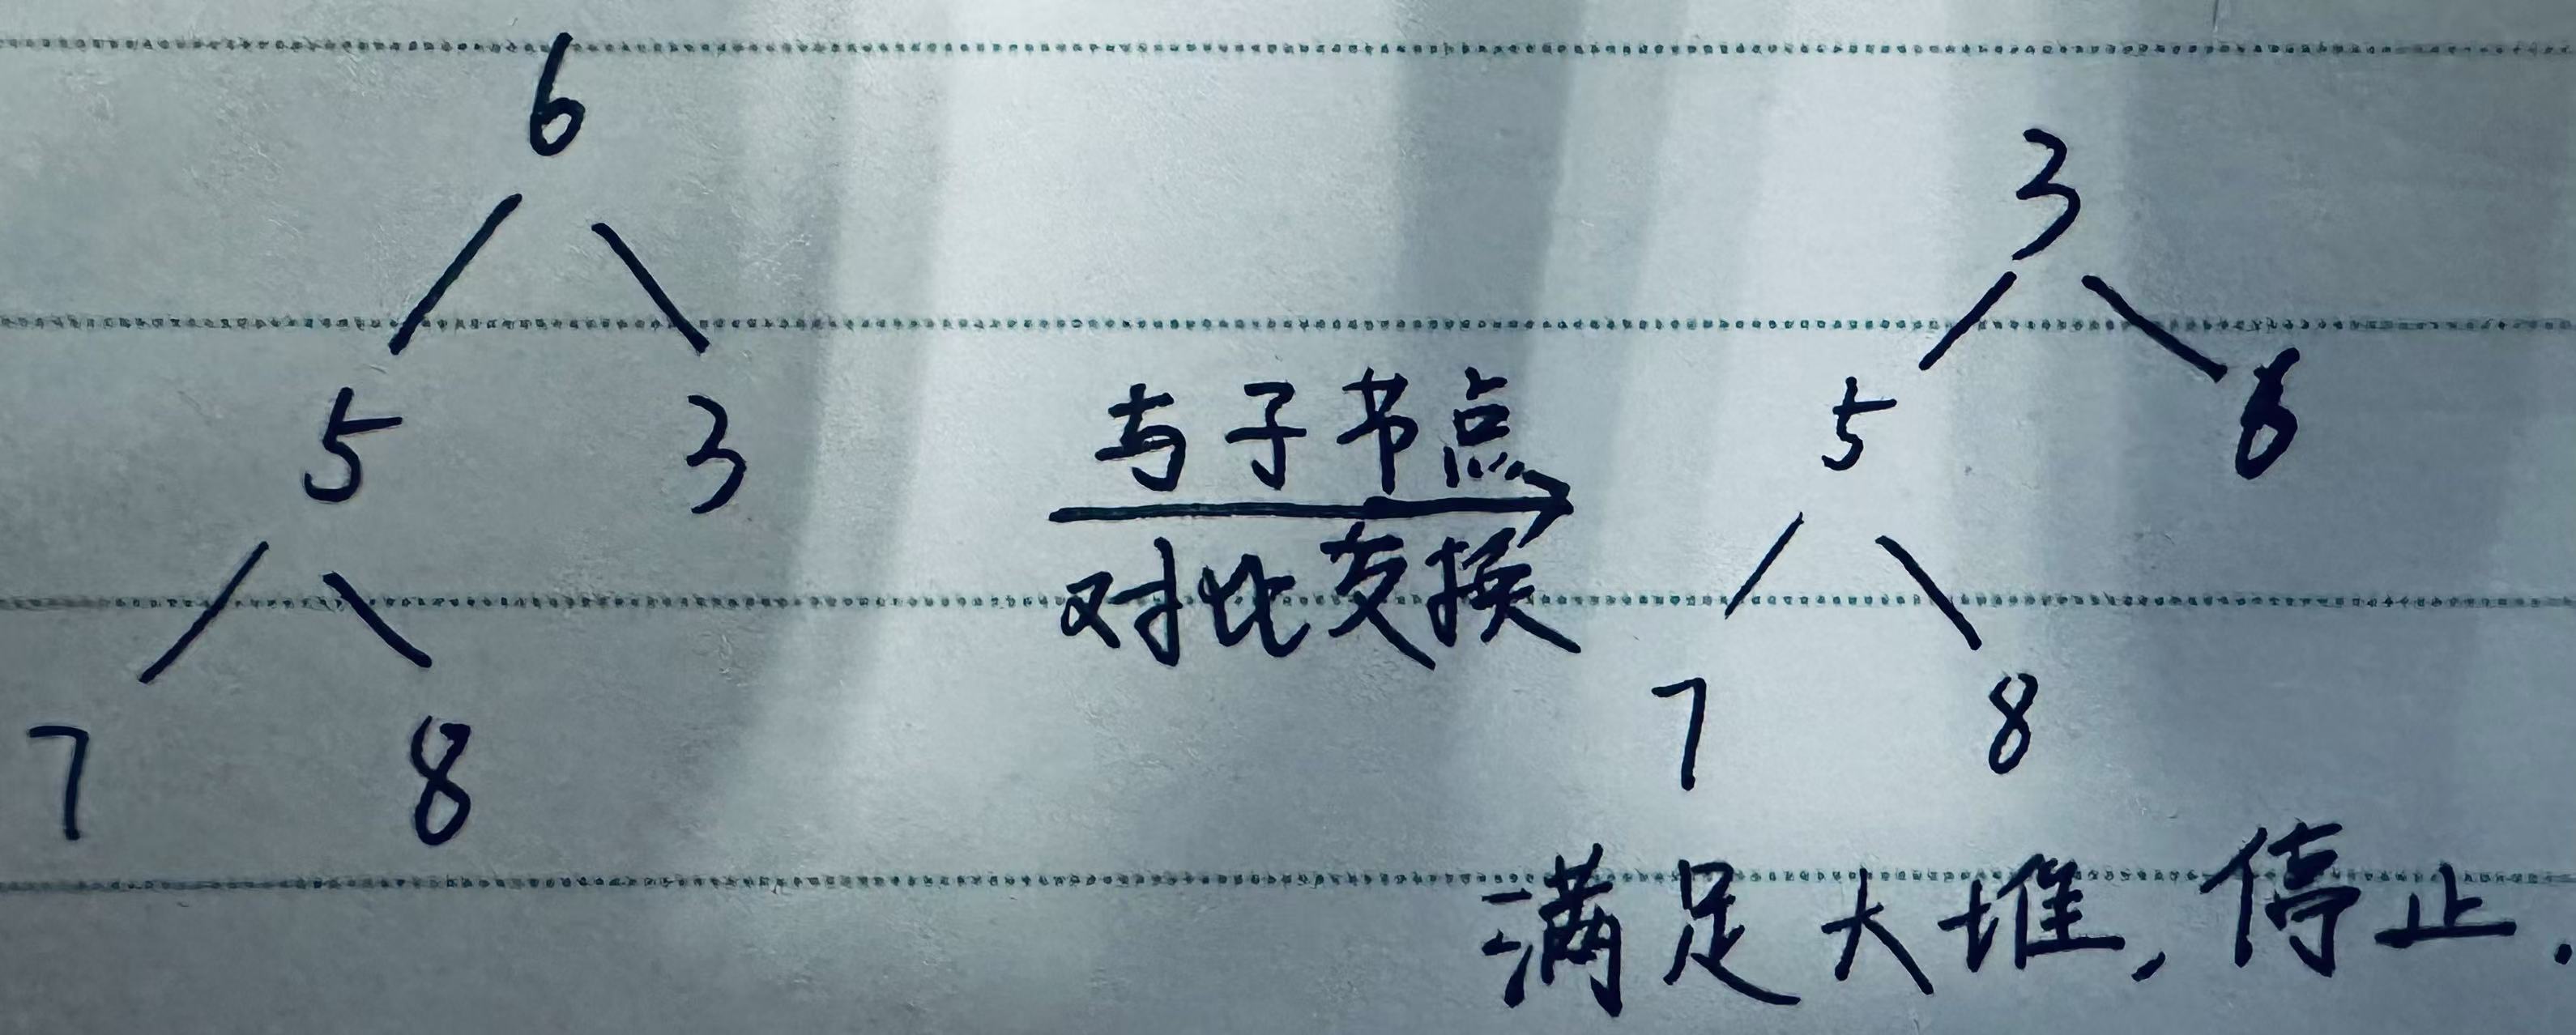 6
5 3
7 8
与子节点
对比交换
3
5 6
7 8
满足大堆,停止.